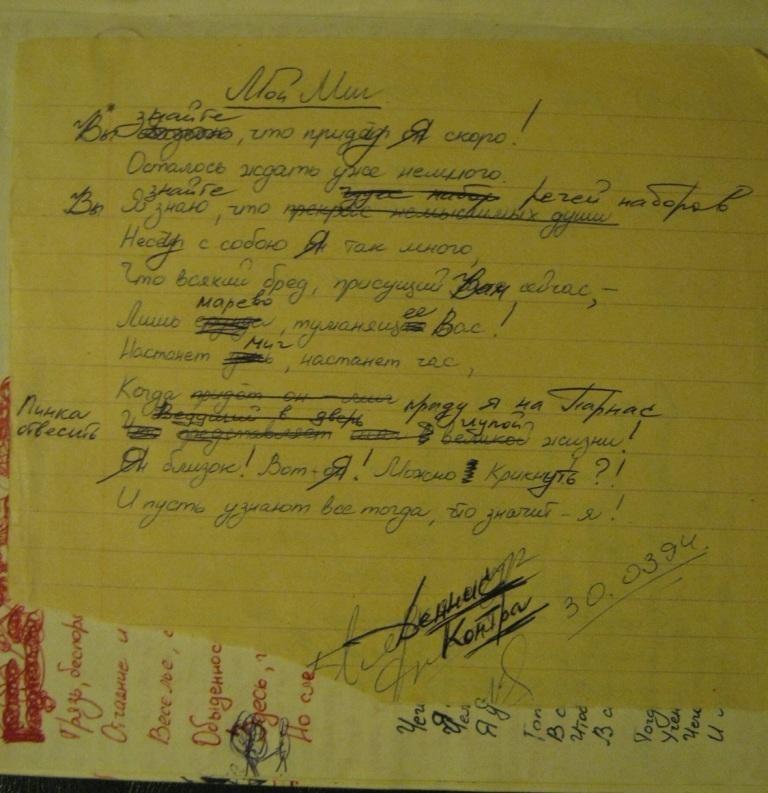 Мой Миг
Вы знайте, что приду Я скоро!
Осталось ждать уже немного.
Вы знайте, что речей наборов
Несу с собою Я так много,
Что всякий бред, присущий Вам сейчас, –
Лишь марево, туманящее Вас!
Настанет миг, настанет час,
Когда приду я на Парнас
Пинка отвесить глупой жизни!
Я близок! Вот-Я! Можно Крикнуть?!
И пусть узнают все тогда, что значит – я!
Деннис
Контра
30.03.94.
Грязь, беспоря
Отчаяние и
Веселье, с
Обыденнос
Здесь, г
Но сле
Чег
Я
Я у
Тог
В с
Что
В с
Тогд
Учен
Чем
И